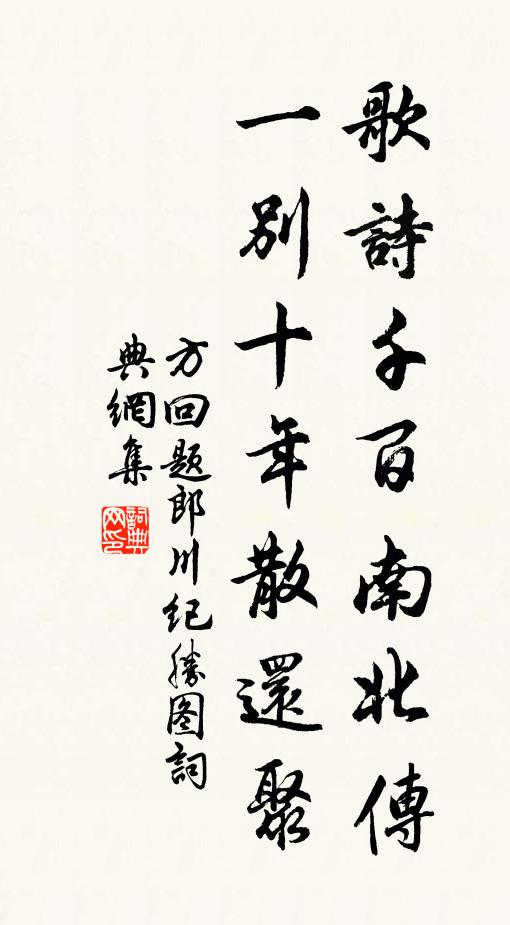 歌詩千百南北傳
一別十年散還聚
方回题郎川纪勝图詞
典網集
詞典
网印